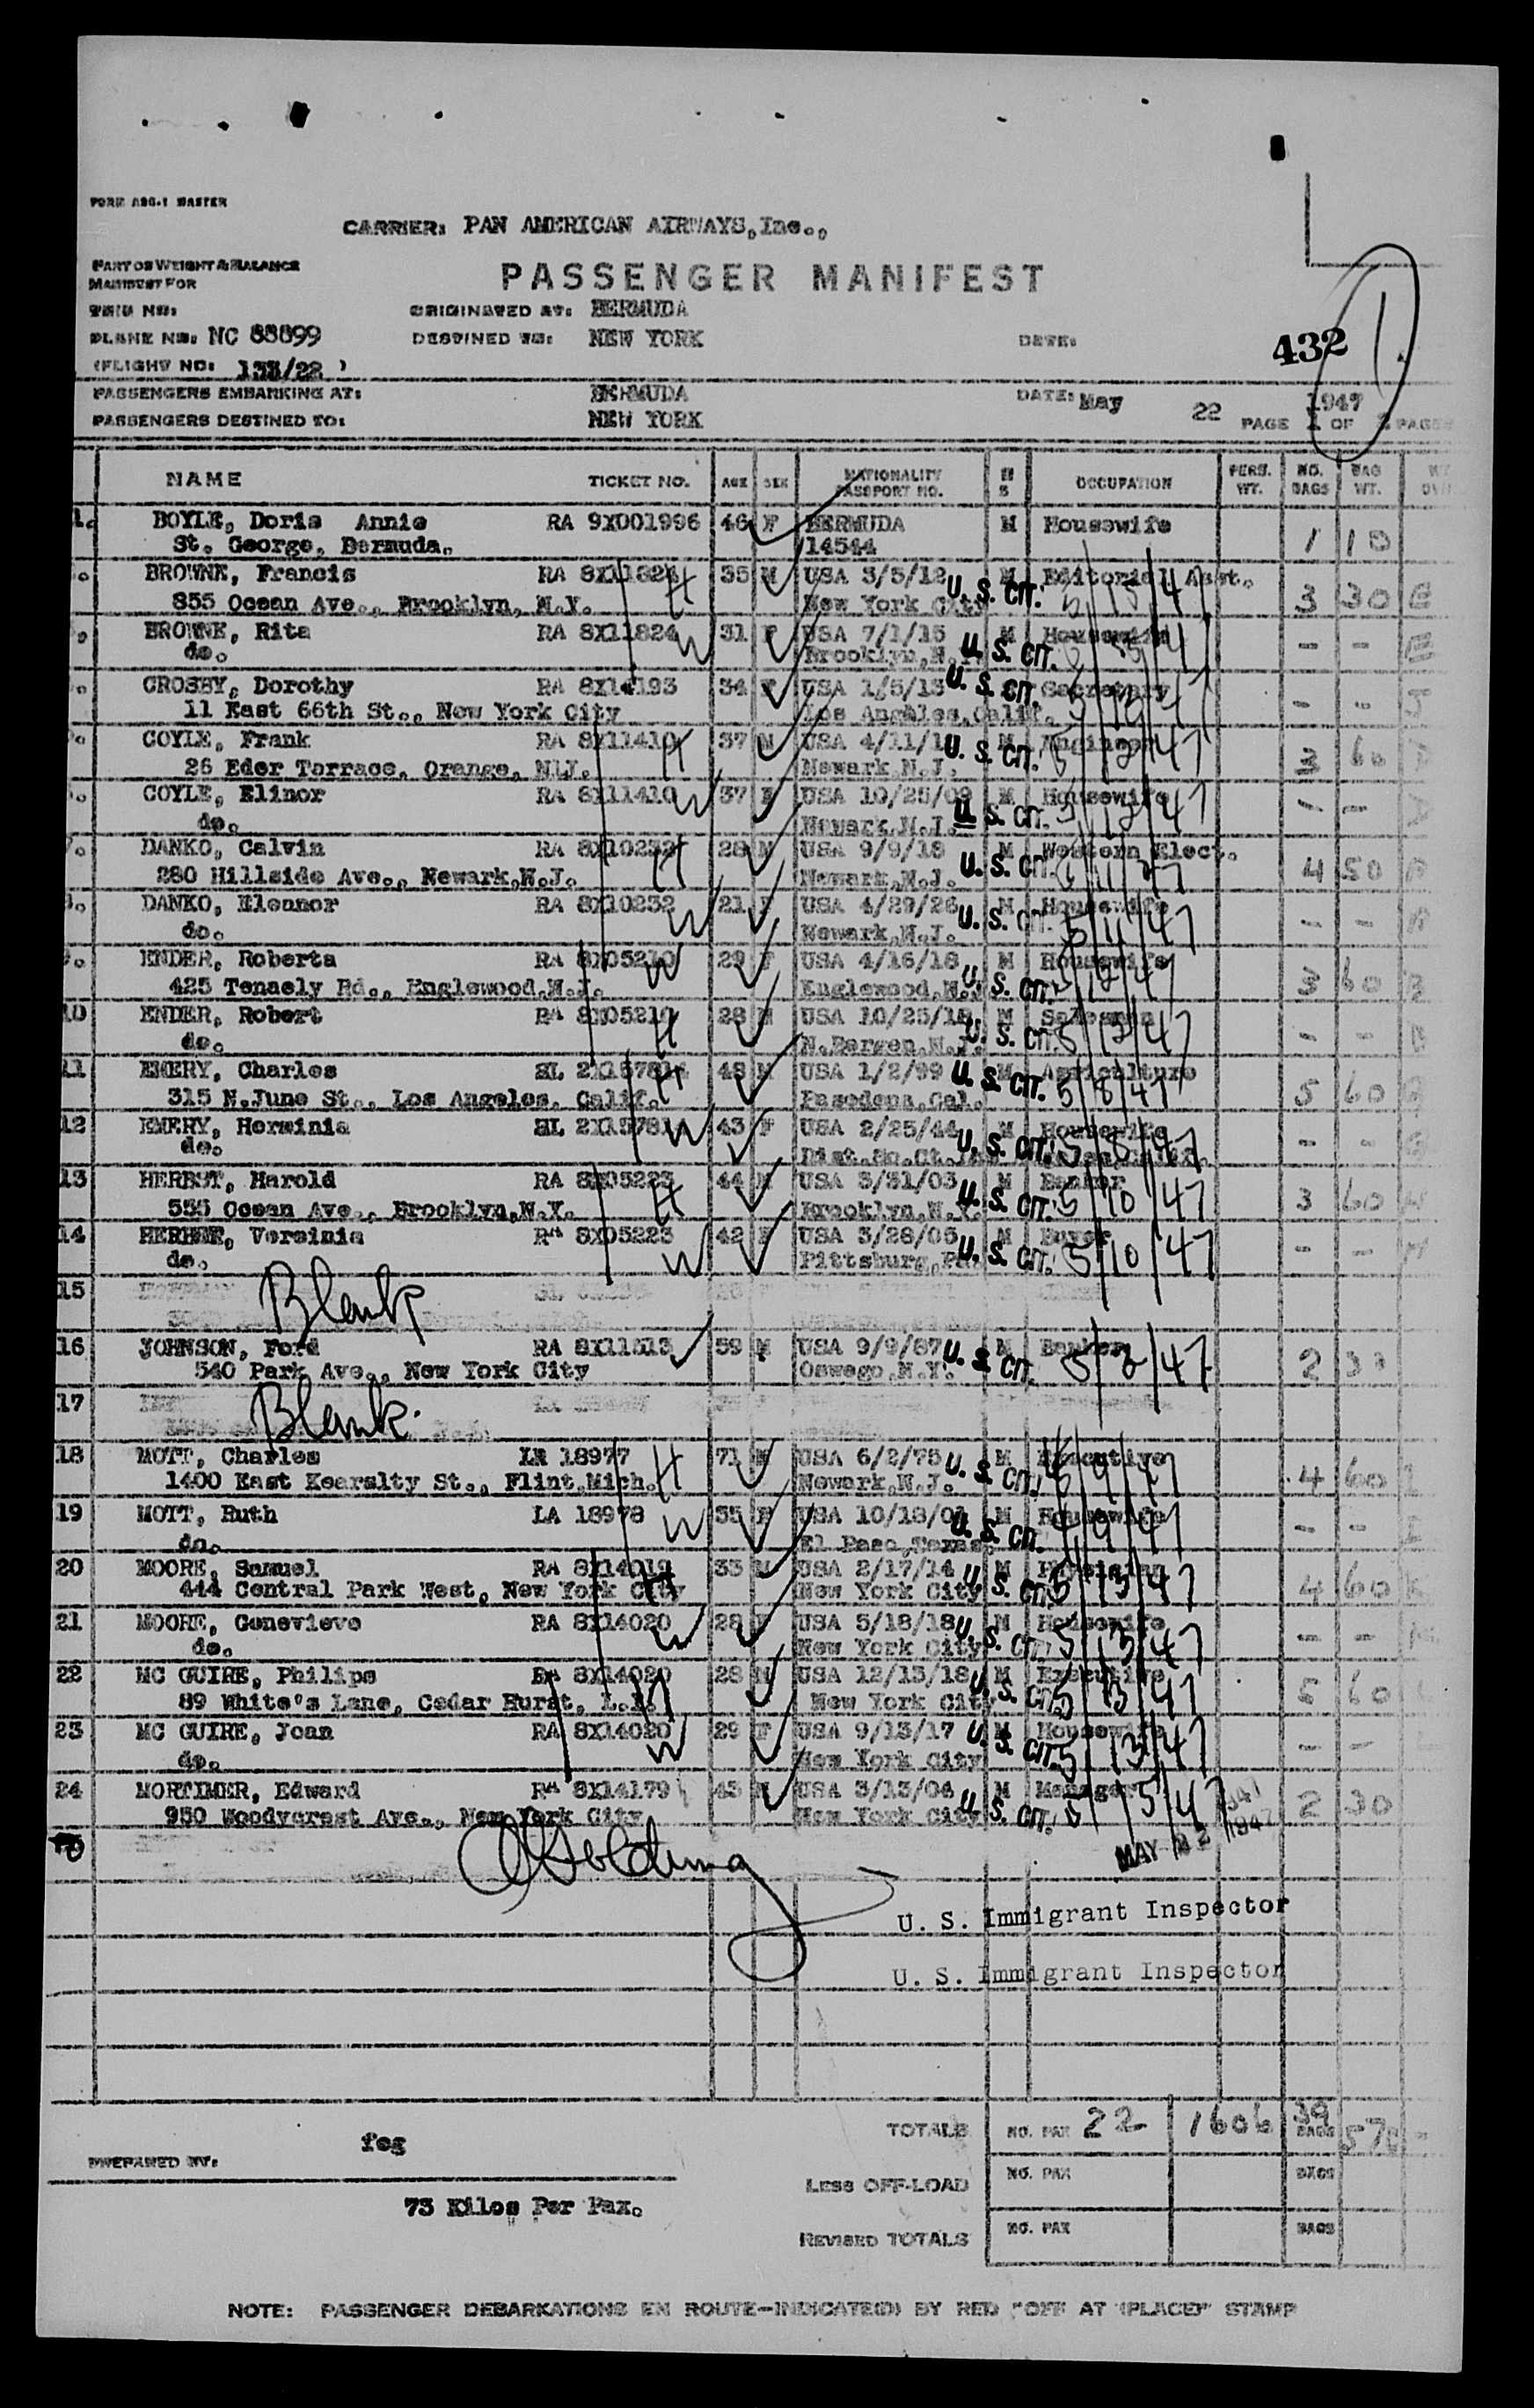 FORM ASG-1 MASTER
CARRIER: PAN AMERICAN AIRWAYS, Inc.,
PART OF WEIGHT & BALANCE
MANIFEST FOR
PASSENGER MANIFEST
TRIP NO:
ORIGINATED AT: BERMUDA
PLANE NO: NC 88899
DESTINED TO: NEW YORK
DATE:
432
(FLIGHT NO: 133/22 )
PASSENGERS EMBARKING AT: BERMUDA
DATE: May 22 1947
PASSENGERS DESTINED TO: NEW YORK
PAGE 1 OF PAGES
NAME TICKET NO. AGE SEX NATIONALITY PASSPORT NO. M S OCCUPATION PERS. WT. NO. BAGS BAG WT.
1. BOYLE, Doris Annie RA 9X001996 46 F BERMUDA M Housewife 1 10
St. George, Bermuda. 14544
BROWNE, Francis RA 8X11824 H 35 M USA 3/5/12 U. S. CIT. M Editorial Asst. 5 13 47 3 30
855 Ocean Ave., Brooklyn, N.Y. New York City
BROWNE, Rita RA 8X11824 W 31 F USA 7/1/15 U. S. CIT. M Housewife 5 13 47 - -
do. Brooklyn, N.Y.
CROSBY, Dorothy RA 8X14193 34 F USA 1/5/13 U. S. CIT. Secretary 5 13 47 - -
11 East 66th St., New York City Los Angeles, Calif.
COYLE, Frank RA 8X11410 H 37 M USA 4/11/1 U. S. CIT. M Engineer 5 12 47 3 60
26 Eder Terrace, Orange, N.J. Newark, N.J.
COYLE, Elinor RA 8X11410 W 37 F USA 10/25/09 U. S. CIT. M Housewife 5 12 47 - -
do. Newark, N.J.
DANKO, Calvin RA 8X10232 H 28 M USA 9/9/18 U. S. CIT. M Western Elect. 5 11 47 4 50
280 Hillside Ave., Newark, N.J. Newark, N.J.
DANKO, Eleanor RA 8X10232 W 21 F USA 4/29/26 U. S. CIT. M Housewife 5 11 47 - -
do. Newark, N.J.
ENDER, Roberta RA 8X05210 W 29 F USA 4/16/18 U. S. CIT. M Housewife 5 12 47 3 60
425 Tenaely Rd., Englewood, N.J. Englewood, N.J.
10 ENDER, Robert RA 8X05210 H 28 M USA 10/25/18 U. S. CIT. M Salesman 5 12 47 - -
do. N. Bergen, N.J.
11 EMERY, Charles 2X157814 H 48 M USA 1/2/99 U. S. CIT. M Agriculture 5 8 47 5 60
315 N. June St., Los Angeles, Calif. Pasadena, Cal.
12 EMERY, Herminia 2X157814 W 43 F USA 2/25/44 U. S. CIT. M Housewife 5 8 47 - -
do. Dist. So. Ct.
13 HERBST, Harold RA 8X05223 H 44 M USA 3/31/03 U. S. CIT. M Banker 5 10 47 3 60
555 Ocean Ave., Brooklyn, N.Y. Brooklyn, N.Y.
14 HERBST, Versinia RA 8X05223 W 42 F USA 3/28/05 U. S. CIT. M Buyer 5 10 47 - -
do. Pittsburg, Pa.
15 Blank
16 JOHNSON, Ford RA 8X11513 59 M USA 9/9/87 U. S. CIT. M Banker 5 2 47 2 30
540 Park Ave., New York City Oswego, N.Y.
17 Blank.
18 MOTT, Charles LR 18977 H 71 M USA 6/2/75 U. S. CIT. M Executive 4 9 47 4 60
1400 East Kearslty St., Flint, Mich. Newark, N.J.
19 MOTT, Ruth LA 18978 W 55 F USA 10/18/01 U. S. CIT. M Housewife 4 9 47 - -
do. El Paso, Texas
20 MOORE, Samuel RA 8X14019 H 33 M USA 2/17/14 U. S. CIT. M Physician 5 13 47 4 60
444 Central Park West, New York City New York City
21 MOORE, Genevieve RA 8X14020 W 28 F USA 5/18/18 U. S. CIT. M Housewife 5 13 47 - -
do. New York City
22 MC GUIRE, Philips RA 8X14020 H 28 M USA 12/13/18 U. S. CIT. M Executive 5 13 47 5 60
89 White's Lane, Cedar Hurst, L.I. New York City
23 MC GUIRE, Joan RA 8X14020 W 29 F USA 9/13/17 U. S. CIT. M Housewife 5 13 47 - -
do. New York City
24 MORTIMER, Edward RA 8X14179 43 M USA 3/13/04 U. S. CIT. M Manager 5 15 47 2 30
950 Woodycrest Ave., New York City New York City
MAY 22 1947
U. S. Immigrant Inspector
U. S. Immigrant Inspector
TOTALS NO. PAX 22 1606 39 BAGS 570
feg
PREPARED BY:
LESS OFF-LOAD NO. PAX BAGS
73 Kilos Per Pax.
REVISED TOTALS NO. PAX BAGS
NOTE: PASSENGER DEBARKATIONS EN ROUTE-INDICATE(D) BY RED "OFF AT (PLACE)" STAMP